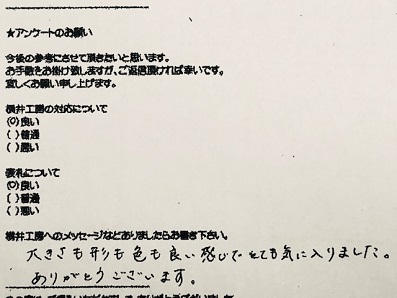 ★アンケートのお願い
今後の参考にさせて頂きたいと思います。
お手数をお掛け致しますが、ご返信頂ければ幸いです。
宜しくお願い申し上げます。
横井工房の対応について
(○)良い
( )普通
( )悪い
表札について
(○)良い
( )普通
( )悪い
横井工房へのメッセージなどありましたらお書き下さい。
大きさも形も色も良い感じでとても気に入りました。
ありがとうございます。